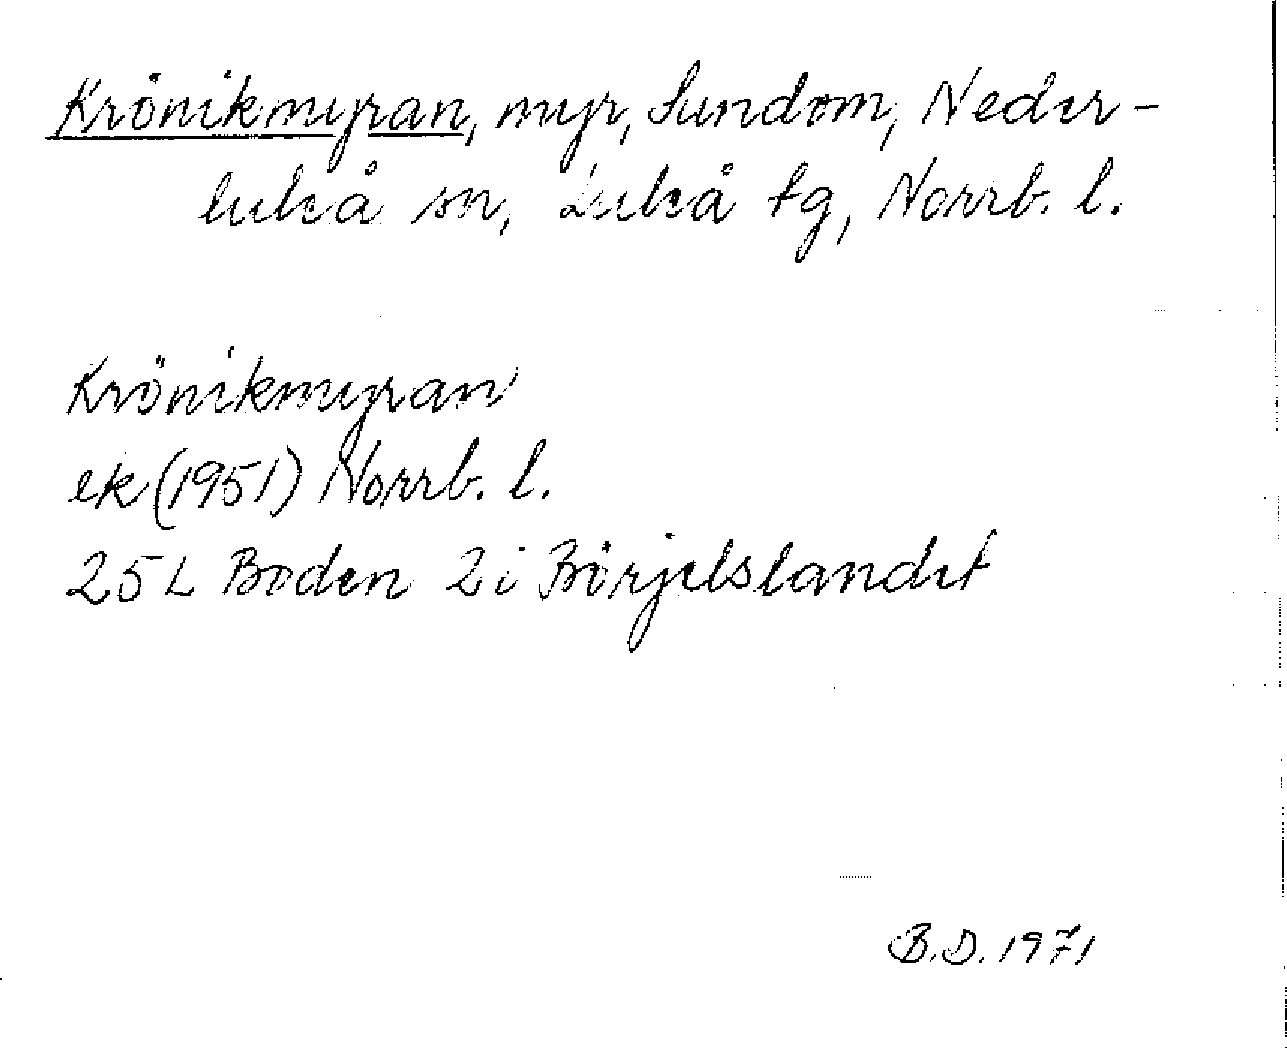 Krönikmyran, myr, Sundom, Neder-
luleå sn, Luleå tg, Norrb. l.
Krönikmyran
ek (1951) Norrb. l.
25 L Boden 2 i Börjelslandet
B.D. 1971